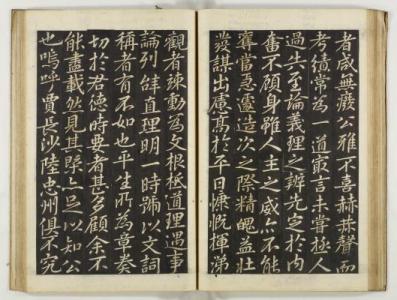 者咸無癈公雅不喜赫赫聲而
考績常為一道最言未嘗極人
過失至論義理之辨先定於内
奮不顧身雖人主之威亦不能
奪當怱遽造次之際精魄益壯
發謀出慮高於平日慷慨揮涕
觀者竦動為文根極道理遇事
論列直理明一時號以文詞
稱者有不如也平生所為章奏
切於君德時要者甚多顧余不
能盡載然見其槩亦足以知公
也嗚呼賈長沙陸忠州俱不究